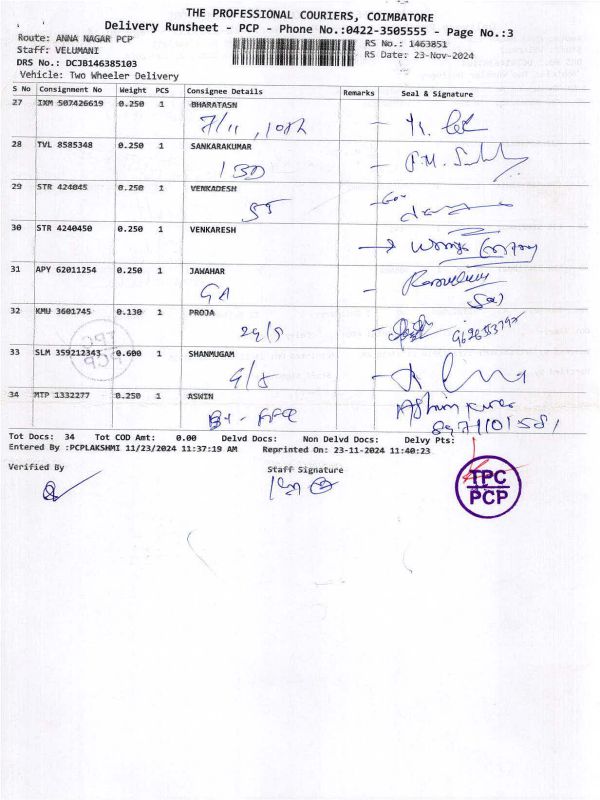 THE PROFESSIONAL COURIERS, COIMBATORE
Delivery Runsheet - PCP - Phone No.:0422-3505555 - Page No.:3
Route: ANNA NAGAR PCP RS No.: 1463851
Staff: VELUMANI RS Date: 23-Nov-2024
DRS No.: DCJB146385103
Vehicle: Two Wheeler Delivery
S No Consignment No Weight PCS Consignee Details Remarks Seal & Signature
27 IXM 507426619 0.250 1 BHARATASN
7/11, 10th
28 TVL 8585348 0.250 1 SANKARAKUMAR
29 STR 424045 0.250 1 VENKADESH
30 STR 4240450 0.250 1 VENKARESH
31 APY 62011254 0.250 1 JAWAHAR
GA
32 KMU 3601745 0.130 1 PROJA
29/5
33 SLM 359212343 0.600 1 SHANMUGAM
34 MTP 1332277 0.250 1 ASWIN
Tot Docs: 34 Tot COD Amt: 0.00 Delvd Docs: Non Delvd Docs: Delvy Pts:
Entered By :PCPLAKSHMI 11/23/2024 11:37:19 AM Reprinted On: 23-11-2024 11:40:23
Verified By Staff Signature
TPC
PCP